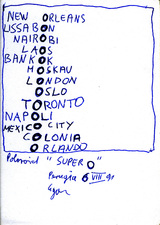 NEW ORLEANS
LISSABON
NAIROBI
LAOS
BANKOK
MOSKAU
LONDON
OSLO
TORONTO
NAPOLI
MEXICO CITY
COLONIA
ORLANDO
Polaroid "SUPER O"
Perugia 6 VIII 91